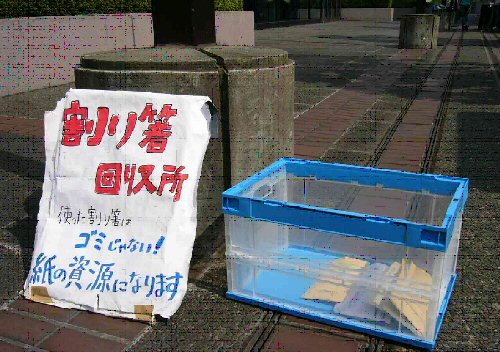 割り箸
回収所
使った割り箸は
ゴミじゃない!
紙の資源になります